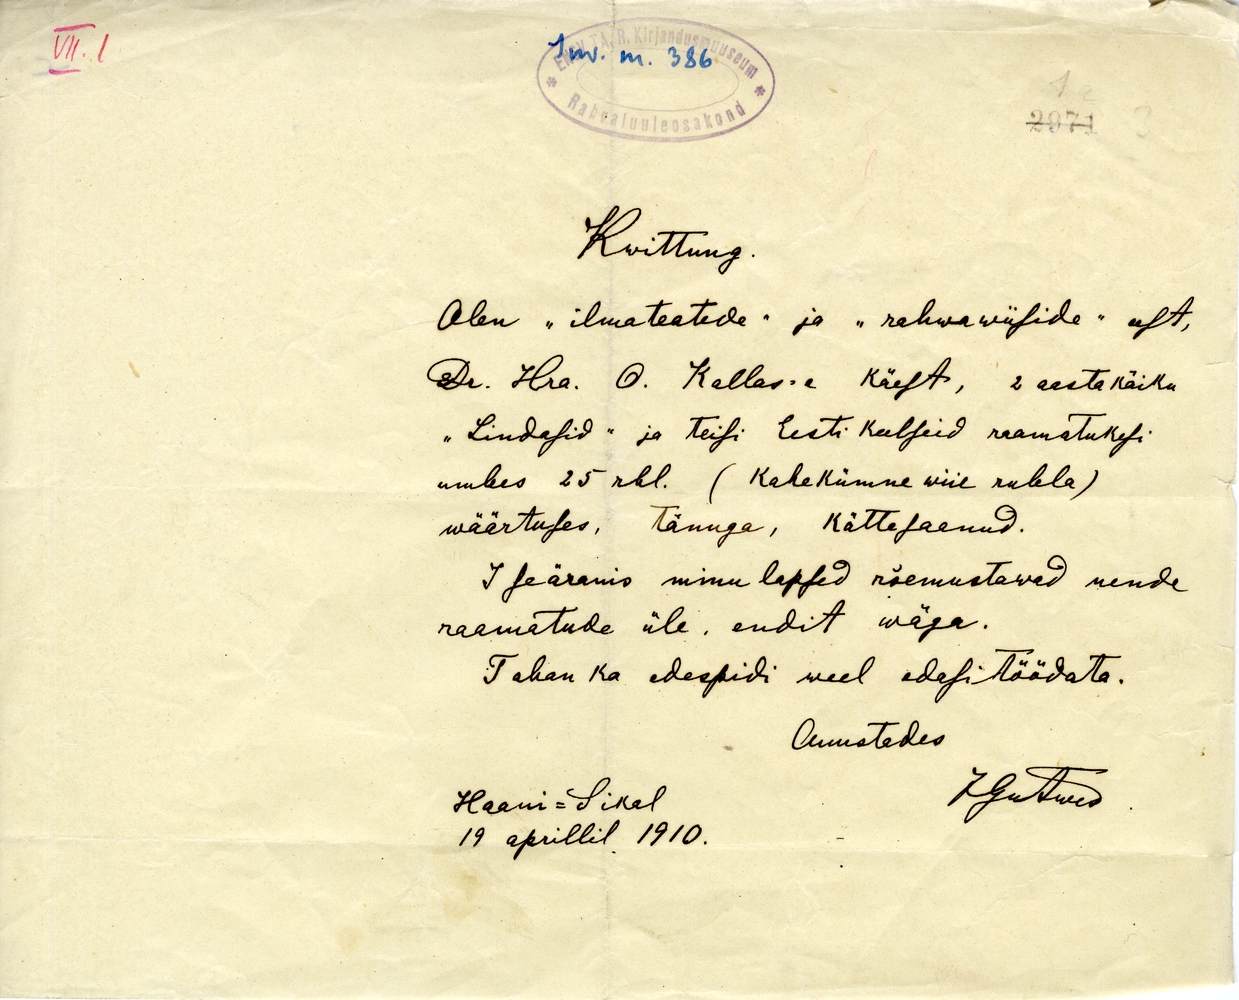 VII. 1
Inv. m. 386
ENSV TA Fr. R. Kirjandusmuuseum
Rahvaluuleosakond
2971
Kwittung.
Olen „ilmateatede“ ja „rahwawiiside“ eest,
Dr. Hra. O. Kallas'e käest, 2 aastakäiku
„Lindasid“ ja teisi Eesti keelseid raamatukesi
umbes 25 rbl. (kahekümne wiie rubla)
wäärtuses, tänuga, kättesaanud.
Iseäranis minu lapsed rõemustawad nende
raamatude üle, endit wäga.
Tahan ka edespidi weel edasi töödata.
Auustades
J Gutwes
Haani=Sikal
19 aprillil 1910.